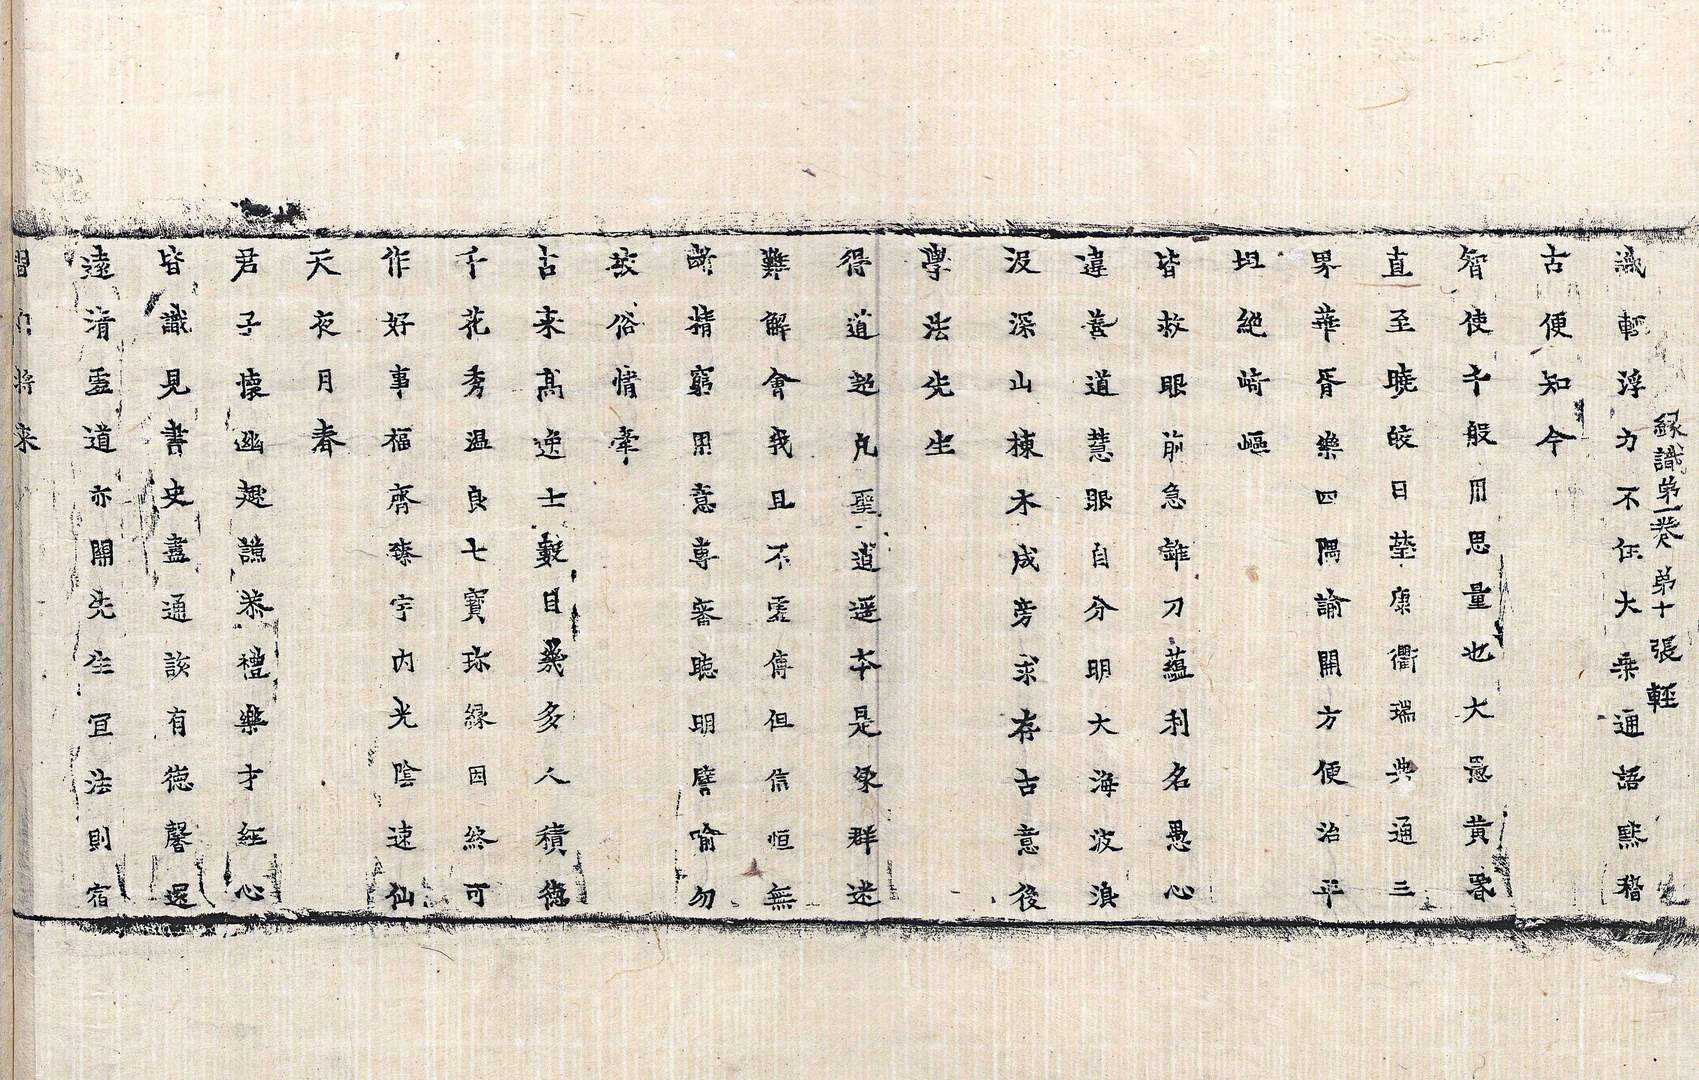 緣識第一卷　第十張　輕
識輕浮力不任大乘通語默稽
古便知今
智使千般用思量也大愚黃昬
直至曉皎日瑩康衢瑞典通三
界華胥樂四隅諭開方便治平
坦絕崎嶇
皆救眼前急錐刀蘊利名愚心
違善道慧眼自分明大海波湏
汲深山棟木成旁求存古意後
學法先生
得道超凡聖逍遥本是尔群迷
難解會我且不虛傳但信恒無
斷精窮用意專審聴明譬喻勿
被俗情牽
古來髙逸士數目幾多人積德
千花秀温良七寶珎緣因終可
作好事福齊臻宇內光陰速仙
天夜月春
君子懷幽趣謙恭禮樂才經心
皆識見書史盡通該有德馨還
遠清虛道亦開先生宜法則宿
將來